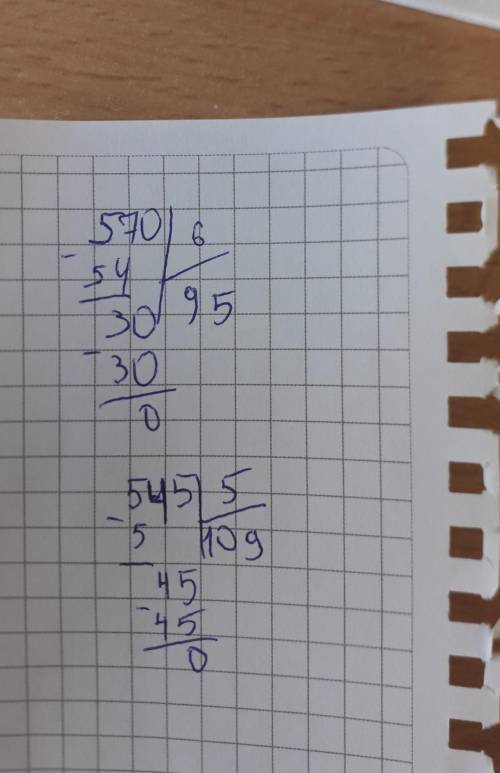 570 6
- 54 95
30
- 30
0
545 5
- 5 109
45
- 45
0